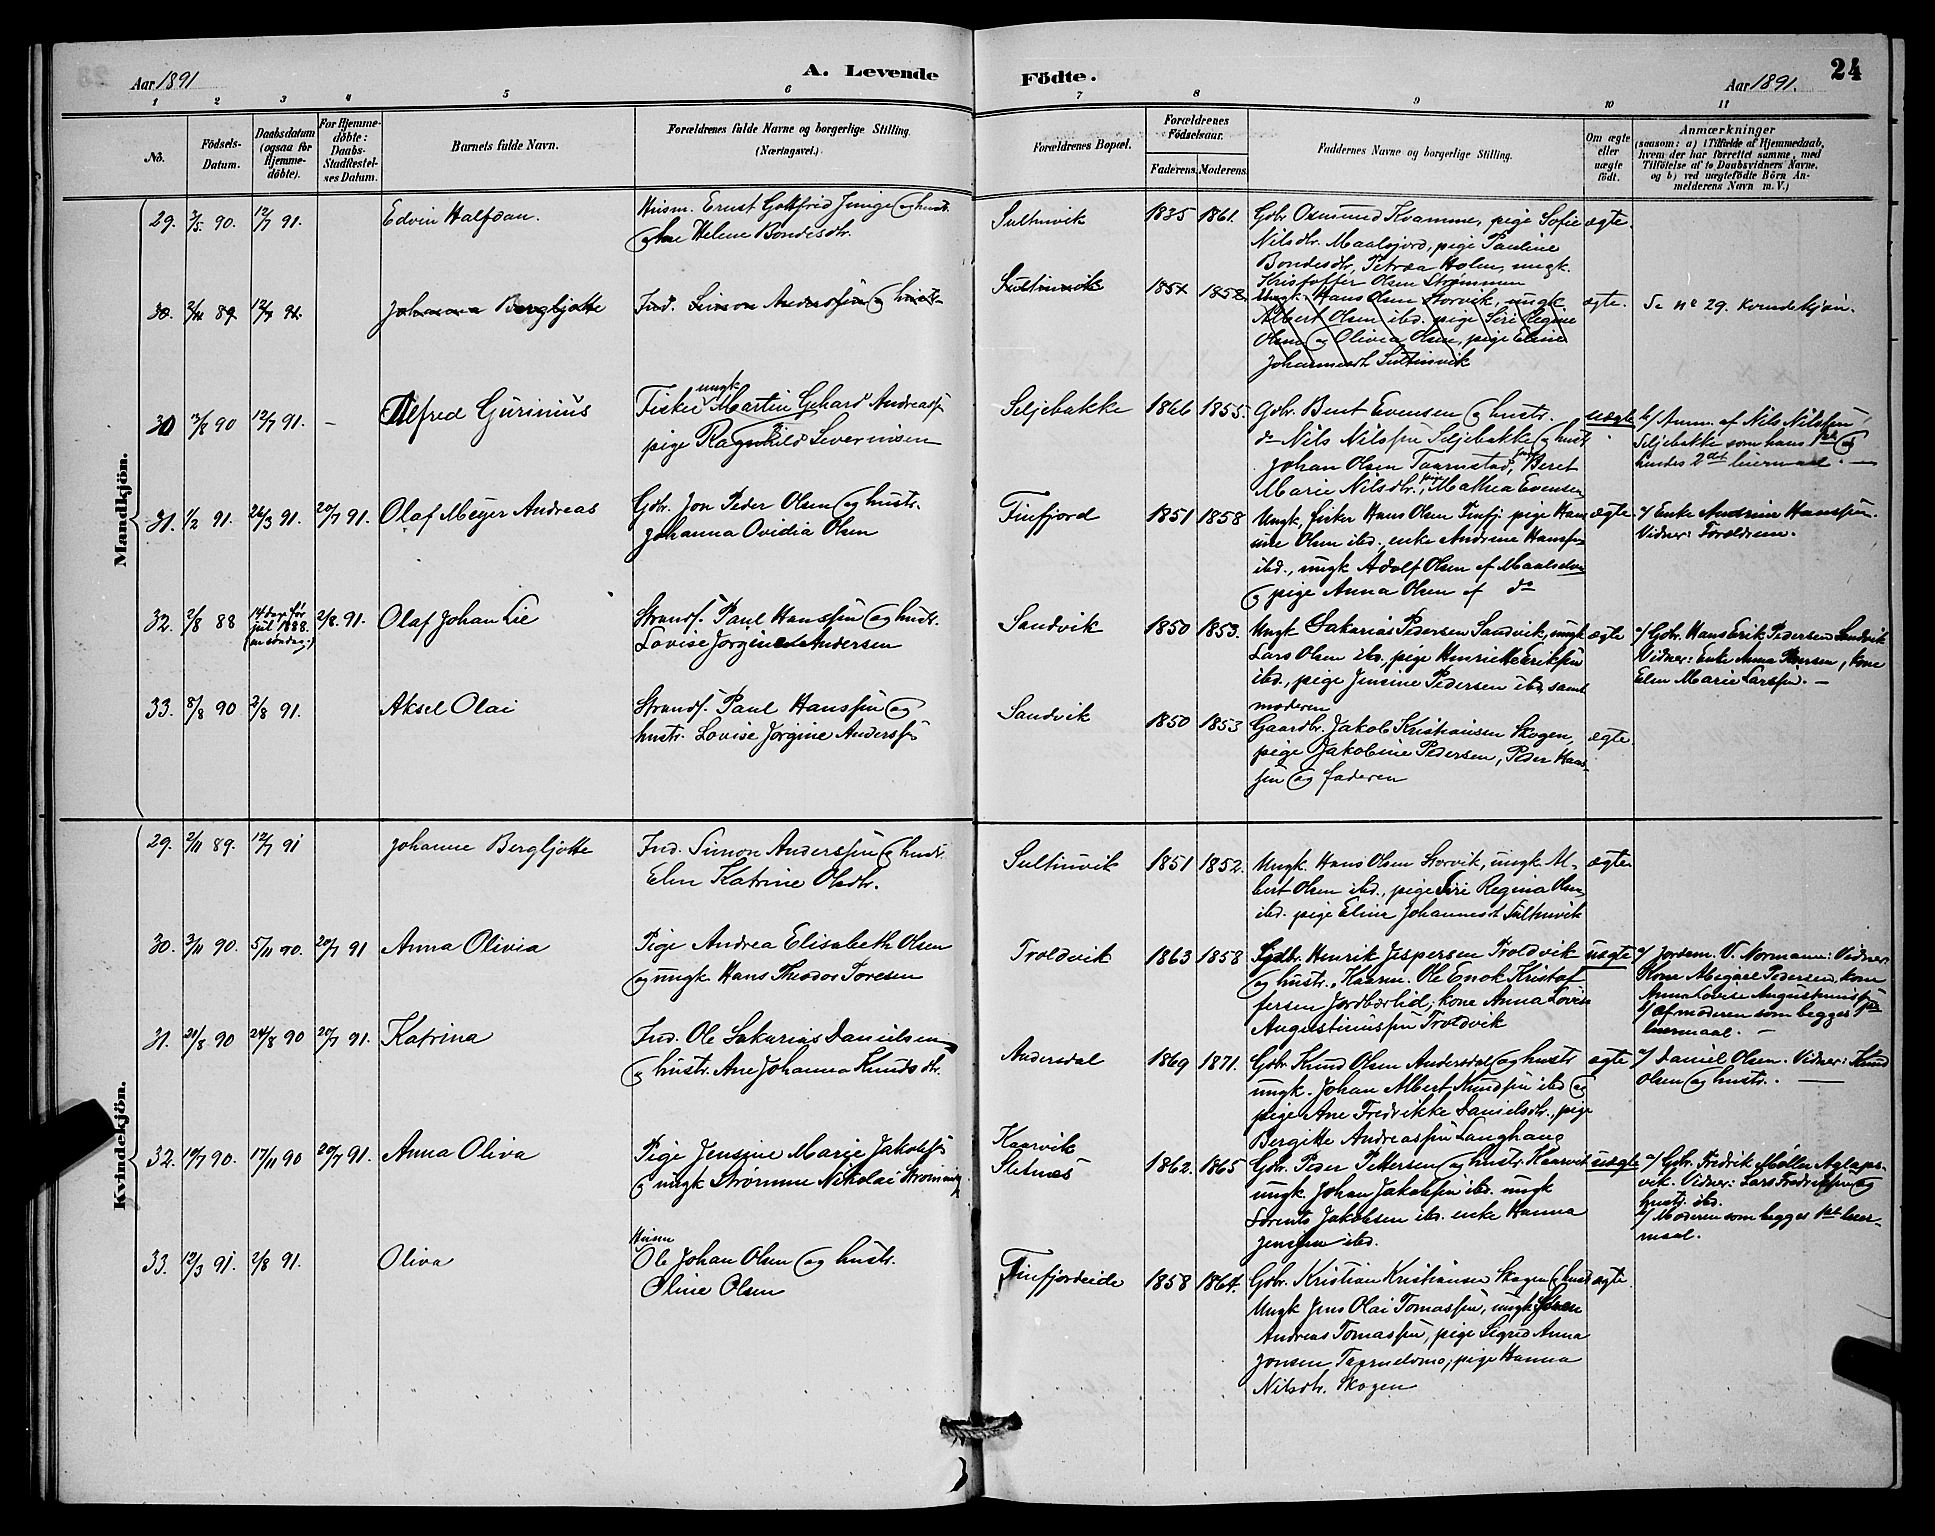 Aar 1891
A. Levende Födte.
Aar 1891.
24
1 2 3 4 5 6 7 8 9 10 11
No.
Födsels-
Datum.
Daabsdatum
(ogsaa for
Hjemme-
döbte).
For Hjemme-
döbte:
Daabs-
Stadfæstel-
ses Datum.
Barnets fulde Navn.
Forældrenes fulde Navne og borgerlige Stilling.
(Næringsvei.)
Forældrenes Bopæl.
Forældrenes
Födselsaar.
Faderens. Moderens.
Faddernes Navne og borgerlige Stilling.
Om ægte
eller
uægte
født.
Anmærkninger
(saasom: a) i Tilfælde af Hjemmedaab,
hvem der har forrettet samme, med
Tilföielse af to Daabsvidners Navne.
og b) ved uægtefödte Börn An-
melderens Navn m. V.)
Mandkjön.
29. 2/5 90. 12/7 91. Edvin Halfdan.
Husm. Ernst Gottfrid og hustr.
Helene Bondesdtr.
Sultinvik 1835 1861.
Gbr. Osmund Kvamme, pige Sofie
Nilsdtr. Maalsjord, pige Pauline
Bondesdtr, Petrea Holm, ungk.
Kristoffer Olsen Strømmen
ægte.
30. 2/11 89. 12/7 91. Johanna Bergljotte
Ind. Simon Anderssen og hustr.
Sultinvik 1854 1852.
Ungk. Hans Olsen Storvik, ungk
Albert Olsen ibd. pige Siri Regine
Olsen og Olivia Olsen, pige Eline
Johannesdt Sultinvik
ægte.
Se No 29. Kvindekjøn.
30 13/8 90 12/7 91. – Alfred Gurinius
Fisker ungk Martin Gehard Andreass.
pige Ragnhild Severinsen
Seljebakke 1866 1855.
Gbr. Bent Evensen og hustr.
do Nils Nilssen Seljebakke og hustr
Johan Olsen Taarnstad, Beret
Marie Nilsdtr., pige Mathea Evensen
uægte
b/ Anm. af Nils Nilssen
Seljebakke som hans 1ste og
hendes 2det leiermaal. —
31. 1/2 91. 26/3 91. 20/7 91. Olaf Meyer Andreas
Gbr. Jon Peder Olsen og hustr.
Johanna Ovidia Olsen
Finfjord 1851 1858
Ungk. fisker Hans Olsen Finfj. pige Han
sine Olsen ibd. enke Andrine Hanssen
ibd., ungk Adolf Olsen af Maalselven
og pige Anna Olsen af do
ægte.
a/ Enke Andrine Hanssen.
Vidner: Forældrene.
32. 2/8 88 14 dage før
jul 1888.
(en søndag.) 2/8. 91. Olaf Johan Lie
Strands. Paul Hanssen og hustr.
Lovise Jørgine Andersen
Sandvik 1850 1853.
Ungk Sakarias Pedersen Sandvik, ungk
Lars Olsen ibd. pige Henriette Eriksen
ibd., pige Jensine Pedersen ibd. samt
moderen
ægte
a/ Gbr. Hans Erik Pedersen Sandvik
Vidner: Enke Anna Hansen, kone
Elen Marie Larssen. –
33. 8/8 90 2/8 91. Aksel Olai
Strands. Paul Hanssen og
hustr. Lovise Jørgine Anderss.
Sandvik 1850 1853
Gaardbr. Jakob Kristiansen Skogen,
pige Jakobine Pedersen, Peder Hans-
sen og faderen
ægte.
Kvindekjön.
29. 2/11 89. 12/7 91 Johanne Bergljotte
Ind. Simon Anderssen og hustr.
Elen Katrine Olsdtr.
Sultinvik 1851 1852.
Ungk. Hans Olsen Storvik, ungk Al-
bert Olsen ibd., pige Siri Regina Olsen
ibd. pige Eline Johannesdt Sultinvik
ægte
30. 3/11 90. 5/11 90. 20/7 91 Anna Olivia
Pige Andrea Elisabeth Olsen
og ungk. Hans Theodor Toresen
Troldvik 1863 1858
Gbr. Henrik Jespersen Troldvik
og hustr. Karen. Ole Enok Kristof
fersen Jordbærlid, kone Anna Lovise
Augustinussen Troldvik
uægte
a/ Jordem. V. Normann: Vidner:
Kone Abigael Pedersen, kone
Anna Lovise Augustinussen
b/ af moderen som begges 1ste
leiermaal. —
31. 21/8 90 24/8 90 20/7 91. Katrina
Ind. Ole Sakarias Danielsen
og hustr. Ane Johanna Knudsdtr.
Andersdal 1869 1871.
Gbr. Knud Olsen Andersdal og hustr
ungk. Johan Albert Knudsen ibd og
pige Ane Fredrikke Danielsdtr., pige
Bergitte Andreassen Langhaug
ægte
a/ Daniel Olsen. Vidner: Knud
Olsen og hustr. —
32. 19/7 90. 17/11 90 20/7 91. Anna Oliva
Pige Jensine Marie Jakobs.
og ungk Strømme Nikolai
Kaarvik
Sletnæs 1862. 1865
Gbr. Peder Pettersen og hustr. Kaarvik
ungk. Johan Jakobsen ibd. ungk
Lorents Jakobsen ibd. enke Hanna
Jenssen ibd.
uægte
a/ Gbr. Fredrik Møller Aglaps-
vik. Vidner: Lars Fredriksen og
hustr. ibd.
b/ Moderen som begges 1ste leier-
maal.
33. 12/3 91. 2/8 91. Oliva
Husm
Ole Johan Olsen og hustr.
Oline Olsen
Finfjordeide 1858 1864.
Gbr. Kristian Kristiansen Skogen og hust
Ungk Jens Olai Tomassen, ungk. Søren
Andreas Tomassen, pige Sigred Anna
Jonsen, pige Hanna
Nilsdtr. Skogen
ægte.